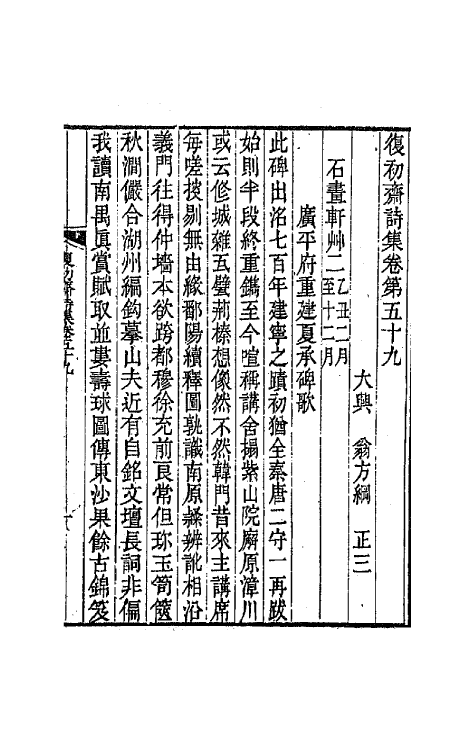 復初齋詩集卷第五十九
大興　翁方綱　正三
石畫軒艸二乙丑二月至十二月
廣平府重建夏承碑歌
此碑出洺七百年建寧之蹟初猶全秦唐二守一再跋
始則半段終重鐫至今喧稱講舍搨紫山院廨原漳川
或云修城雜瓦甓荊榛想像然不然韓門昔來主講席
每嗟披剔無由緣鄱陽續釋圖孰識南原辨訛相沿
義門往得仲墻本欲跨都穆徐充前艮常但珎玉筍篋
秋澗儼合湖州編鈎摹山夫近有自銘文壇長詞非偏
我讀南禺眞賞賦取並婁壽球圖傳東沙果餘古錦笈
復初齋詩集卷五十九